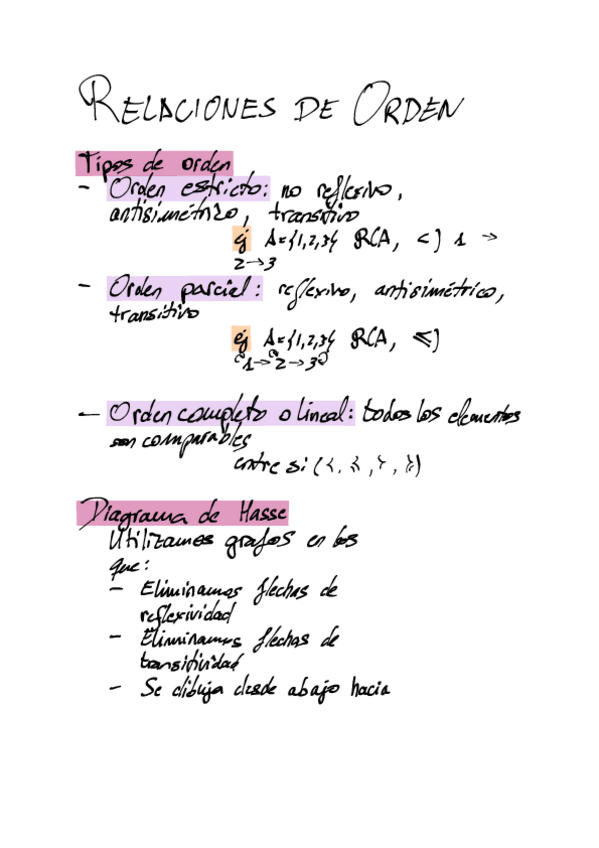 RELACIONES DE ORDEN
Tipos de orden
- Orden estricto: no reflexivo,
antisimétrico, transitivo
ej A={1,2,3} R(A, <) 1 →
2→3
- Orden parcial: reflexivo, antisimétrico,
transitivo
ej A={1,2,3} R(A, ≤)
1→2→3
- Orden completo o lineal: todos los elementos
son comparables
entre si (<, ≤, >, ≥)
Diagrama de Hasse
Utilizamos grafos en los
que:
- Eliminamos flechas de
reflexividad
- Eliminamos flechas de
transitividad
- Se dibuja desde abajo hacia